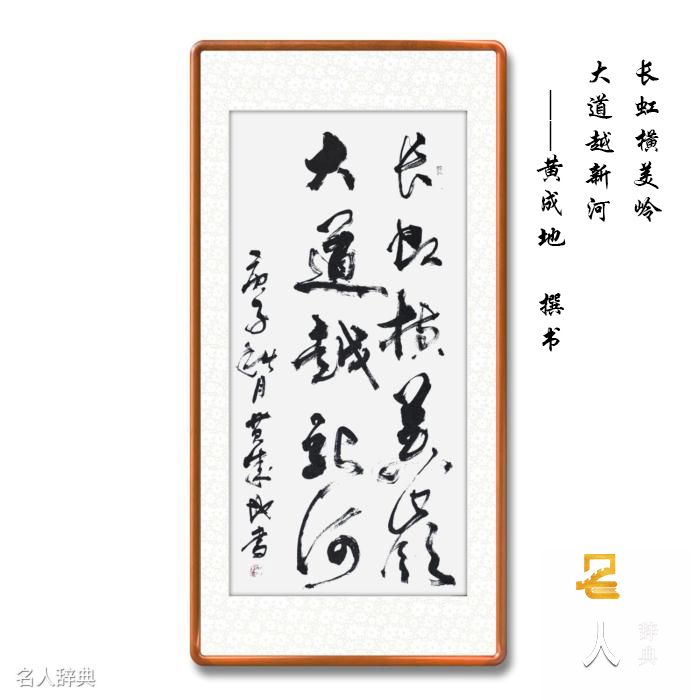 长虹横美岭
大道越新河
——黄成地 撰书
长虹横美嶺
大道越新河
庚子月黄成地書
名人
辞典
名人辞典